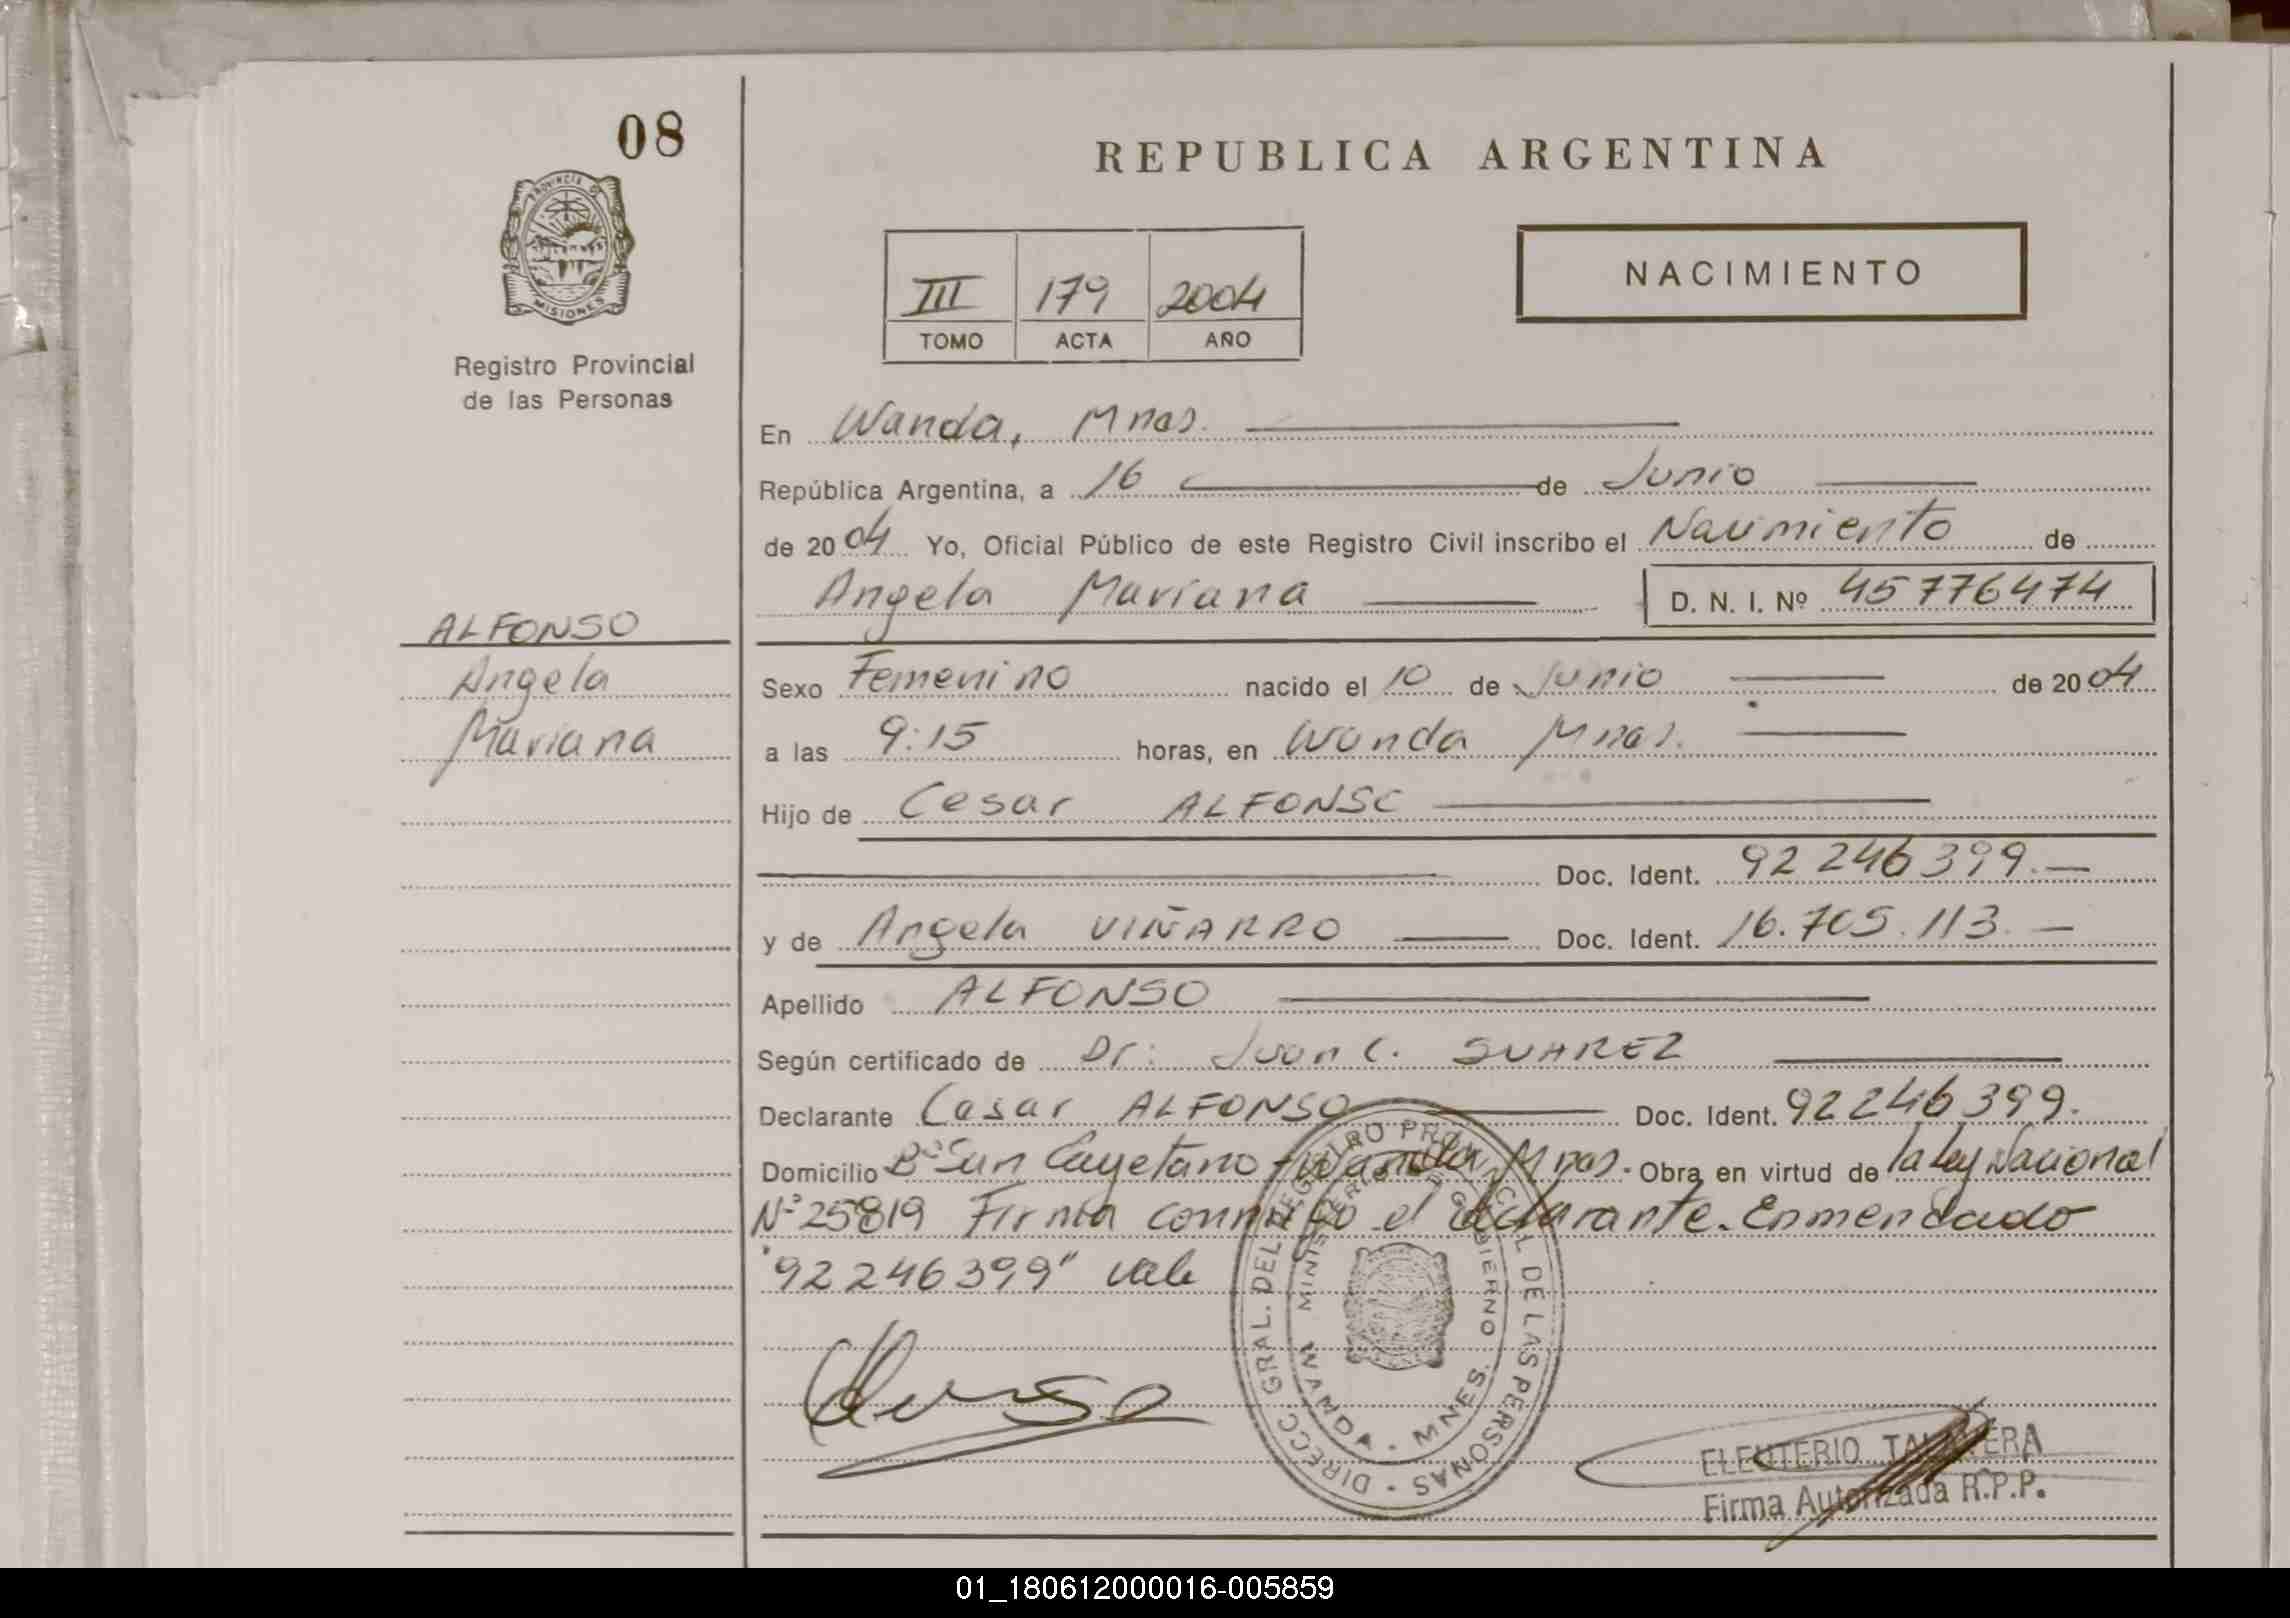 08
PROVINCIA DE
MISIONES
Registro Provincial
de las Personas
REPUBLICA ARGENTINA
III 179 2004
TOMO ACTA AÑO
NACIMIENTO
En Wanda, Mnes.
República Argentina, a 16 de Junio
de 2004 Yo, Oficial Público de este Registro Civil inscribo el Nacimiento de
Angela Mariana D. N. I. Nº 45776474
ALFONSO
Angela
Mariana
Sexo Femenino nacido el 10 de Junio de 2004
a las 9:15 horas, en Wanda Mnes.
Hijo de Cesar ALFONSO
Doc. Ident. 92 246 399.—
y de Angela VIÑARRO Doc. Ident. 16.705.113.—
Apellido ALFONSO
Según certificado de Dr: Juan C. SUAREZ
Declarante Cesar ALFONSO Doc. Ident. 92246399.
Domicilio Bº San Cayetano - Wanda, Mnes. Obra en virtud de la Ley Nacional
Nº 25819 Firma conmigo el declarante. Enmendado
"92246399" vale
DIRECC. GRAL. DEL REGISTRO PROVINCIAL DE LAS PERSONAS
MINISTERIO DE GOBIERNO
WANDA - MNES.
ELEUTERIO TALAVERA
Firma Autorizada R.P.P.
01_180612000016-005859